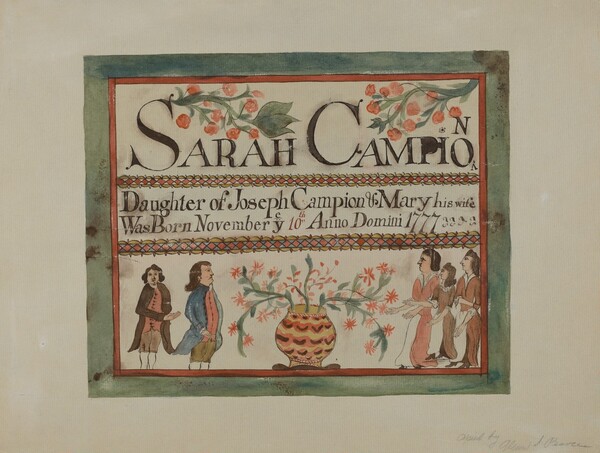 SARAH CAMPION
Daughter of Joseph Campion & Mary his wife
Was Born November yᵉ 10th Anno Domini 1777
by